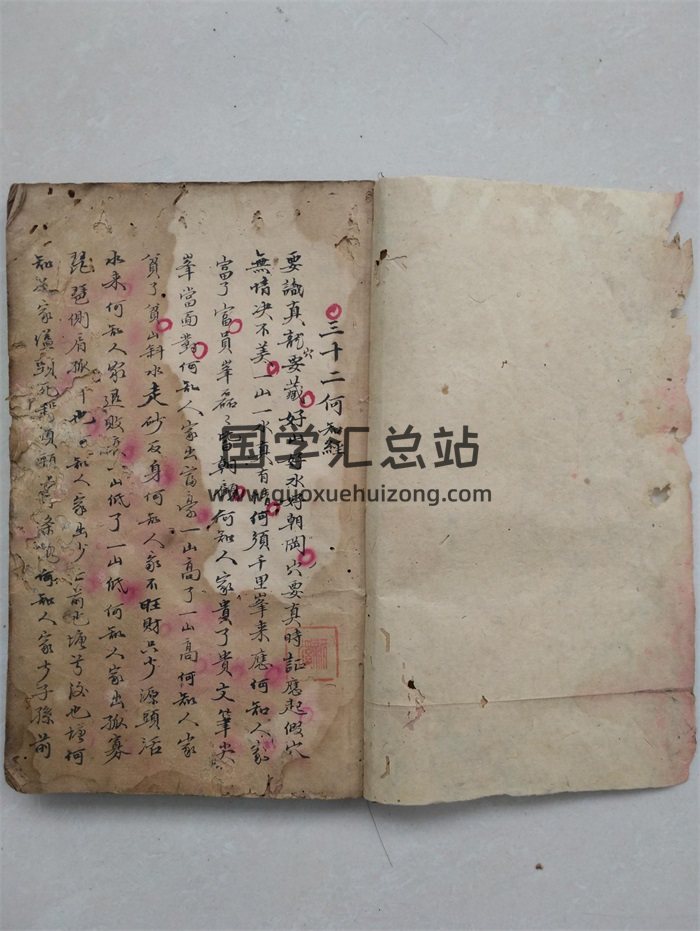 三十二何知經
要識真龍要藏好山好水好朝岡穴要真時証應起假穴
無情决不美一山一水真有情何須千里峯来應何知人家
富了富員峯磊々當朝顧何知人家貴了貴文筆尖
峯當面對何知人家出富豪一山高了一山高何知人家
貧了貧山斜水走砂反身何知人家不旺財只少源頭活
水来何知人家退敗一山低了一山低何知人家出孤寡
琵琶側肩孤也知人家出少亡前也塘兮後也塘何
知人家死何知人家少子孫前
国学汇总站
www.guoxuehuizong.com